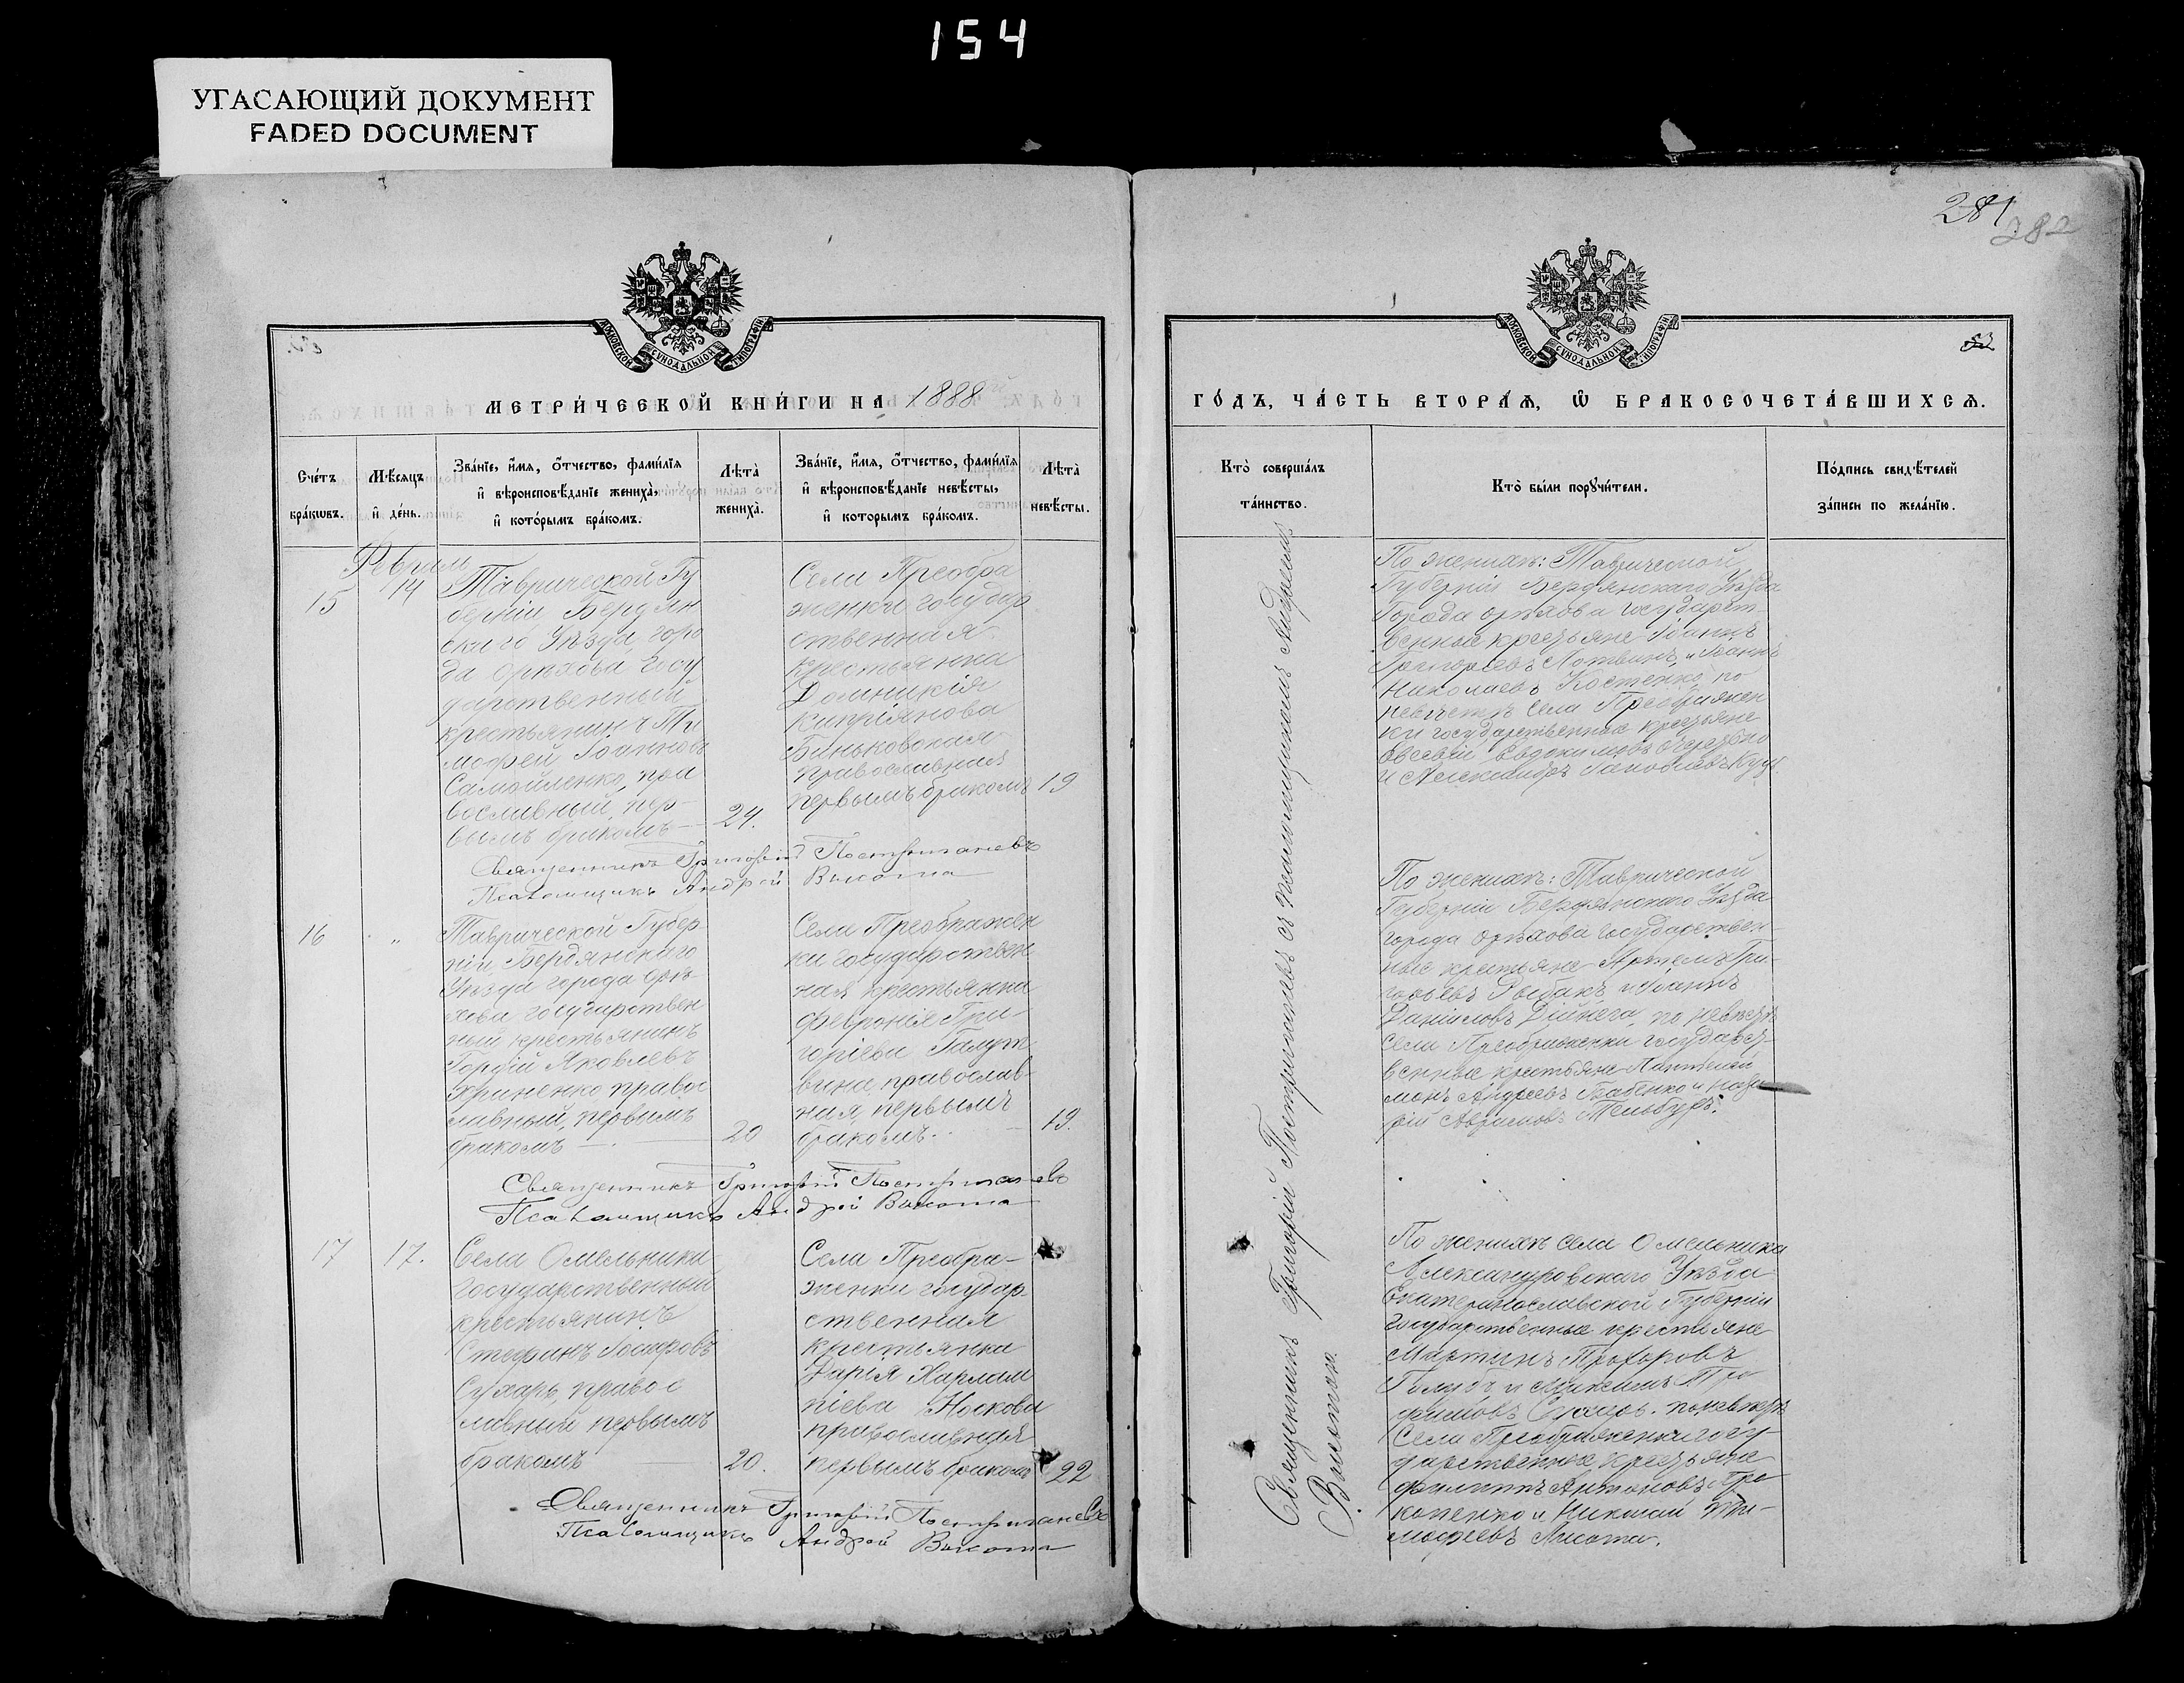 154
УГАСАЮЩИЙ ДОКУМЕНТ
FADED DOCUMENT
281
282
МОСКОВСКОЙ СѴНОДАЛЬНОЙ ТИПОГРАФІИ
МЕТРИ́ЧЕСКОЙ КНИ́ГИ НА 1888
Сче́тъ бра́кѡвъ.
Мѣ́сѧцъ и҆ де́нь.
Зва́нїе, и҆́мѧ, ѻ҆́тчество, фами́лїѧ
и҆ вѣроисповѣ́данїе жениха̀,
и҆ кото́рымъ бра́комъ.
Лѣта̀ жениха̀.
Зва́нїе, и҆́мѧ, ѻ҆́тчество, фами́лїѧ
и҆ вѣроисповѣ́данїе невѣ́сты,
и҆ которымъ бра́комъ.
Лѣта̀ невѣ́сты.
15
14
Таврической Гу
берніи Бердян
скаго Уѣзда, горо
да Орѣхова Госу
дарственный
крестьянинъ Ти
мофей Іоанновъ
Самойленко, пра
вославный, пер-
вымъ бракомъ
24.
Села Преобра
женки государ
ственная
крестьянка
Домникія
Кипріянова
Баньковская
православная
первымъ бракомъ
19
Священникъ Григорій Постригачевъ
Псаломщикъ Андрей Высота
16
"
Таврической Губер-
ніи Бердянскаго
Уѣзда города Орѣ-
хова государствен
ный крестьянинъ
Гордій Яковлевъ
Хриненко правос
лавный, первымъ
бракомъ
20
Села Преображен
ки государствен
ная крестьянка
Февронія Гри-
горіева
православ-
ная, первымъ
бракомъ.
19.
Священникъ Григорій Постригачевъ
Псаломщикъ Андрей Высота
17
17.
Села Омельника
государственный
крестьянинъ
Стефанъ Іосифовъ
Сухарь, правос
лавный первымъ
бракомъ
20.
Села Преобра-
женки государ
ственная
крестьянка
Дарія Харлам
піева Носкова
православная
первымъ бракомъ
22
Священникъ Григорій Постригачевъ
Псаломщикъ Андрей Высота
МОСКОВСКОЙ СѴНОДАЛЬНОЙ ТИПОГРАФІИ
ГО́ДЪ, ЧА́СТЬ ВТОРА́Ѧ, Ѽ БРАКОСОЧЕТА́ВШИХСѦ.
Кто̀ соверша́лъ
та́инство.
Кто̀ бы́ли порꙋчи́тели.
По́дпись свидѣ́телей
за́писи по жела́нїю.
Священникъ Григорій Постригачевъ съ псаломщикомъ Андреемъ
Высотою.
По женихѣ: Таврической
Губерніи Бердянскаго Уѣзда
Города Орѣхова государст-
венные крестьяне Іоаннъ
Григорьевъ Іоаннъ
Николаевъ Костенко, по
невѣстѣ Села Преображен
ки государственные крестьяне
Евсевій Евдокимовъ
и Александръ
По женихѣ: Таврической
Губерніи Бердянскаго Уѣзда
города Орѣхова государствен-
ные крестьяне Артемъ Гри-
горьевъ Рыбакъ и Іоаннъ
Даніиловъ по невѣстѣ
Села Преображенки государст-
венные крестьяне Пантелей
монъ Андреевъ Бабенко и
По женихѣ Села Омельника
Александровскаго Уѣзда
Екатеринославской Губерніи
государственные крестьяне
Мартинъ Прохоровъ
Голубъ и Максимъ Тро
фимовъ Сухарь. по невѣстѣ
Села Преображенки госу-
дарственные крестьяне
Филиппъ Антоновъ Про
копенко и Николай Ти-
мофеевъ